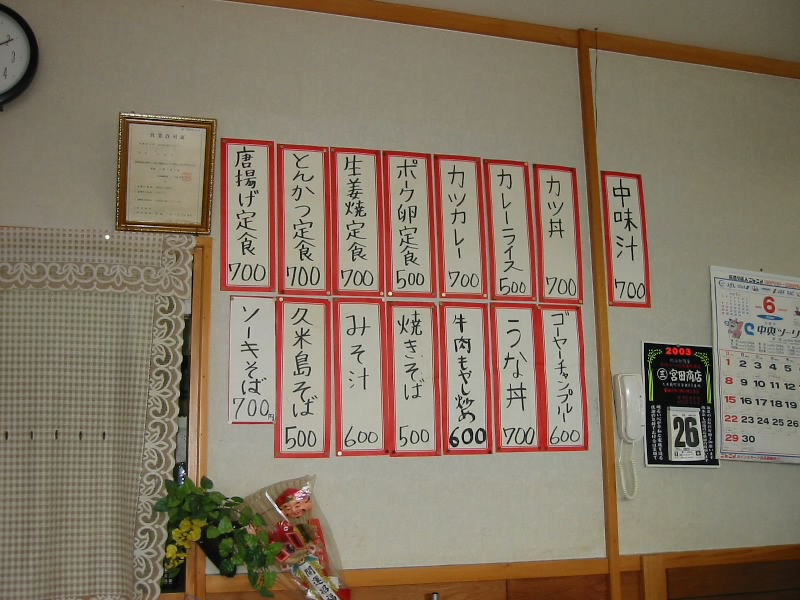 中味汁
700
カツ丼
700
カレーライス
500
カツカレー
700
ポーク卵定食
500
生姜焼定食
700
とんかつ定食
700
唐揚げ定食
700
ゴーヤーチャンプルー
600
うな丼
700
牛肉もやし炒め
600
焼きそば
500
みそ汁
600
久米島そば
500
ソーキそば
700円
2003
宮田商店
26
6
中央ツーリ
1 2 3 4 5
8 9 10 11 12
15 16 17 18 19
22 23 24 25 26
29 30
2
3
4